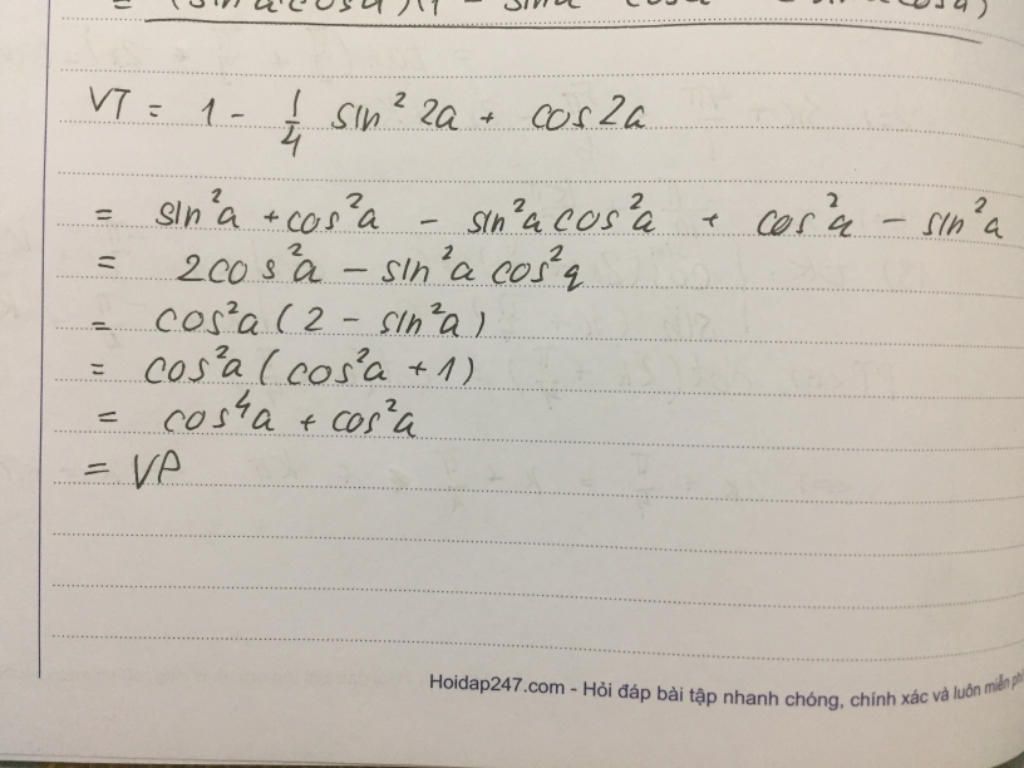 = (sin a cos a) (1 - sin a cos a)
VT = 1 - 1/4 sin² 2a + cos 2a
= sin²a + cos²a - sin²a cos²a + cos²a - sin²a
= 2cos²a - sin²a cos²a
= cos²a (2 - sin²a)
= cos²a (cos²a + 1)
= cos⁴a + cos²a
= VP
Hoidap247.com - Hỏi đáp bài tập nhanh chóng, chính xác và luôn miễn phí